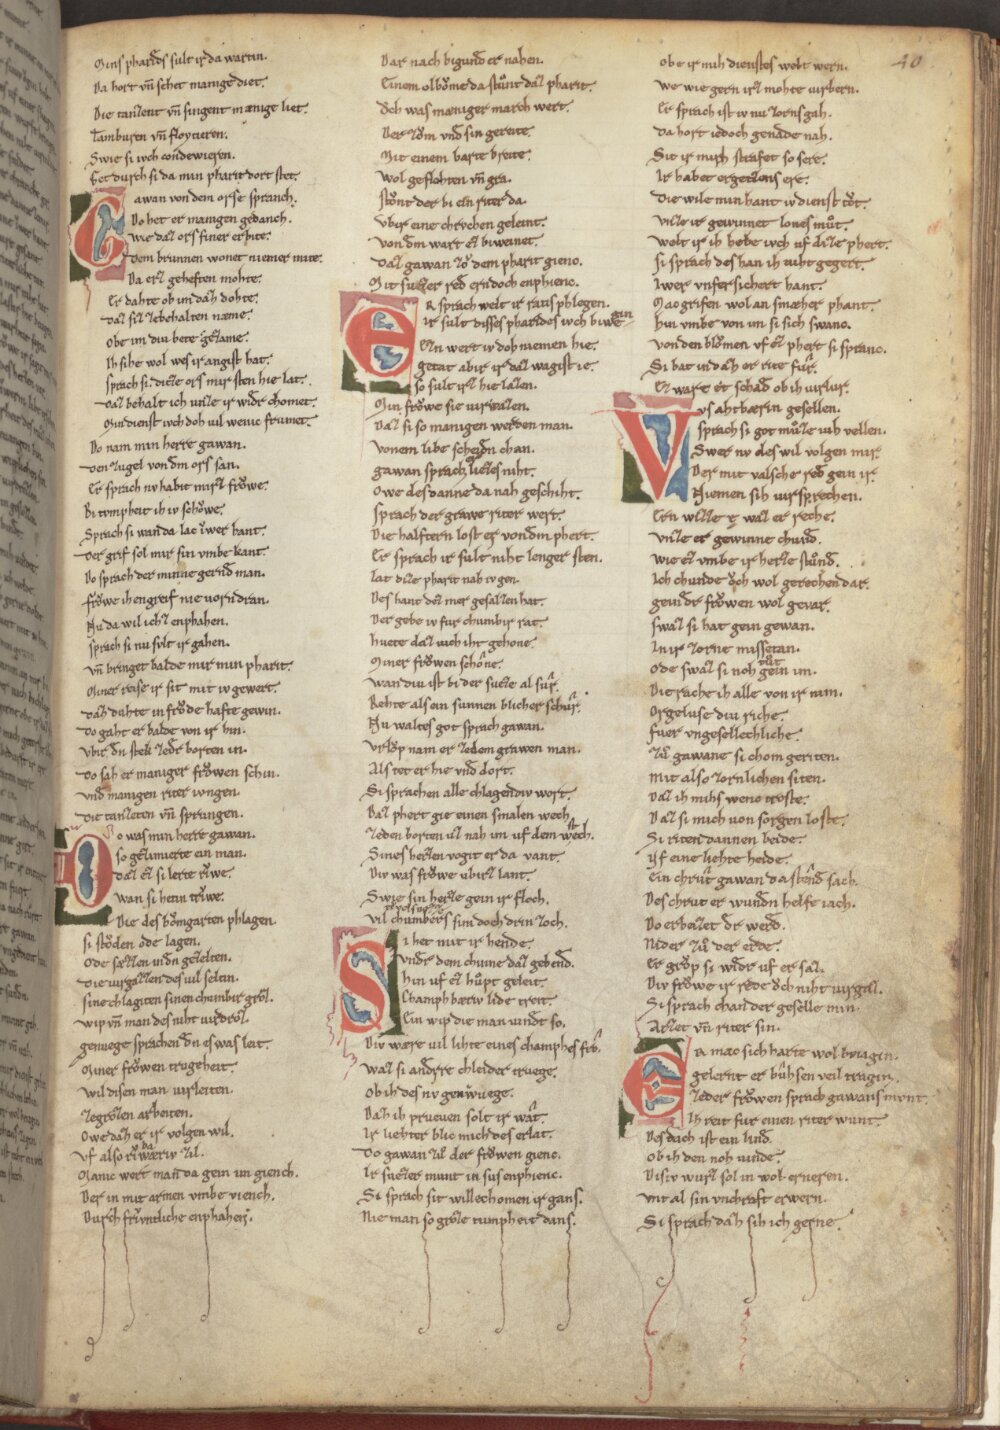 Mins phardes sult ir da wartin.
Da hort vñ sehet manige diet.
Die tanzent vñ singent mænige liet.
Tamburen vñ floytieren.
Swie si ivch condewieren.
Get durch si da min pharit dort stet.
Gawan von dem orse spranch.
Do het er manigen gedanch.
Wie daz ors siner erbite.
Dem brunnen wonet niemer mite.
Da erz geheften mohte.
Er dahte ob im daz dohte.
Daz siz zebehalten næme.
Obe im div bete gezæme.
Ih sihe wol wes ir angist hat.
sprach si. dizze ors mir sten hie lat.
Daz behalt ich vnze ir widr chomet.
Min dienst ivch doh vil wenic frumet.
Do nam min herre gawan.
Den zugel von dm ors san.
Er sprach nv habit mirz frowe.
Bi tvmpheit ih iv schowe.
Sprach si wan da lac iwer hant.
Der grif sol mir sin vmbe kant.
Do sprach der minne gernd man.
frowe ih engreif nie vorn dran.
Nu da wil ichz enphahen.
sprach si nu svlt ir gahen.
vñ bringet balde mir min pharit.
Miner reise ir sit mit iv gewert.
Daz duhte in frode hafte gewin.
Do gaht er balde von ir hin.
Vbir dn stek zedr borten in.
Do sah er maniger frowen schin.
vnd manigen riter ivngen.
Die tanzeten vñ sprungen.
Do was min herre gawan.
So gezimierte ein man.
Daz ez si lerte rwe.
Wan si heten trwe.
Die des bomgarten phlagen.
si stoden ode lagen.
Ode sæzzen vndn gezelten.
Die virgazzen des vil selten.
sine chlagiten sinen chumbir groz.
wip vñ man des niht virdroz.
genuege sprachen dn es was leit.
Miner frowen trugeheit.
wil disen man virleiten.
Zegrozen arbeiten.
Owe daz er ir volgen wil.
Vf also riwæriv zil.
Manic wert man da gein im giench.
Der in mit armen vmbe viench.
Durch frivntliche enphahen.
Dar nach bigund er nahen.
Einem olbome da stunt daz pharit.
Och was maniger march wert.
Der zom vnd sin gereite.
Mit einem barte breite.
Wol geflohten vñ gra.
stont der bi ein riter da
Vbir eine chrvchen geleint.
Von dm wart ez biweinet.
Daz gawan zo dem pharit gienc.
Mit suezzer red ern doch enphienc.
Er sprach welt ir ratis phlegen.
Ir sult disses pharides ivch biwegin
Ezn wert iv doh niemen hie.
getat abir ir daz wagist ie.
so sult irz hie lazen.
Min frowe sie virwazen.
Daz si so manigen werden man.
Vonem libe scheidn chan.
gawan sprach er liezes niht.
Owe des danne da nah geschiht.
sprach der grawe riter wert.
Die halftern lost er von dm phert.
Er sprach ir sult niht lenger sten.
Lat dize pharit nah iv gen.
Des hant dez mer gesalzen hat.
Der gebe iv fur chumbir rat.
huete daz ivch iht gehone.
Miner frowen schone.
wan div ist bi der sueze al sur.
Rehte als ein sunnen blicher schur.
Nu waltes got sprach gawan.
Vrlop nam er zedem grawen man.
Als tet er hie vnd dort.
Si sprachen alle chlagendiv wort.
Daz phert gie einen smalen wech.
zeden borten uz nah im uf dem stech.
Sines herzen vogit er da vant.
Div was frowe ubirz lant.
Swie sin herze gein ir floch.
vil chumbers sim doch drin zoch.
Si het mit ir hende.
Vndr dem chinne daz gebend.
hin uf ez hupt geleit.
Champh bæriv lide treit.
Ein wip die man vindt so.
Div wære vil lihte eines champhes fro.
Waz si andre chleider truege.
Ob ih des nv gewuege.
Daz ih prueuen solt ir wat.
Ir liehter blic mich des erlat.
Do gawan zu der frowen gienc.
Ir suezer munt in sus enphienc.
Si sprach sit willechomen ir gans.
Nie man so groze tumpheit dans.
40
obe ir mih dienstes welt wern.
we wie gern irz mohte virbern.
Er sprach ist iv nu zornsgah.
da hort iedoch genade nah.
Sit ir mich strafet so sere.
Ir habet ergetzens ere.
Die wile min hant iv dienst tot.
vnze ir gewinnet lones mut.
welt ir ih hebe ivch uf dize phert.
si sprach des han ih niht gegert.
Iwer vnfersichert hant.
Mac grifen wol an smæher phant.
Hin vmbe von im si sich swanc.
Von den blomen vf ez phert si spranc.
Si bat in daz er rite fur.
Ez wære et schad ob ih virlur.
Vs ahtbærin gesellen.
sprach si got muze iuh vellen.
Swer nv des wil volgen mir
Der mit valsche red gein ir.
Niemen sih virsprechen.
Ern wizze e waz er reche.
vnze er gewinne chund.
wie ez vmbe ir herze stund.
Ich chunde och wol gerechen dar.
gein dr frowen wol gevar.
swaz si hat gein gewan.
In ir zorne missetan.
Ode swaz si noh tut gein im.
Die rache ih alle von ir nim.
Orgeluse div riche.
fuer vngesellechliche.
zu gawane si chom geriten.
mit also zornlichen siten.
Daz ih mihs wenc troste.
Daz si mich von sorgen loste.
Si riten dannen beide.
Uf eine liehte heide.
Ein chrut gawan da stend sach.
Des chrut er wundn helfe iach.
Do erbaizet dr werd.
Nider zu der erde.
Er grop si widr uf er saz.
Div frowe ir rede och niht virgaz.
Si sprach chan der geselle min.
Arzet vñ riter sin.
Er mac sich harte wol beiagin.
gelernt er buhsen veil tragin.
zeder frowen sprach gawans munt.
Ih reit fur einen riter wunt.
Des dach ist ein lind.
Ob ih den noh vinde.
Disiv wurz sol in wol ernern.
vnt al sin vnchraft erwern.
Si sprach daz sih ich gerne.